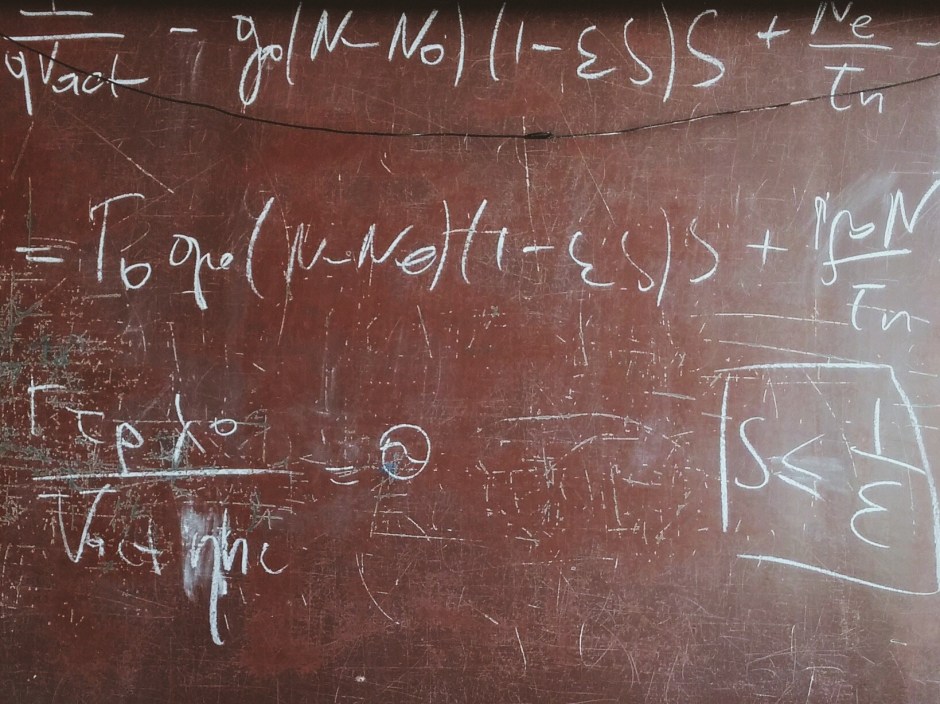 I/qV_act - g_0(N-N_0)(1-εS)S + N_e/τ_n -
= Γ_0 g_0(N-N_0)(1-εS)S + N/τ_n
Γ τ_p λ_0 / V_act η h c = ϑ
S ≤ 1/ε